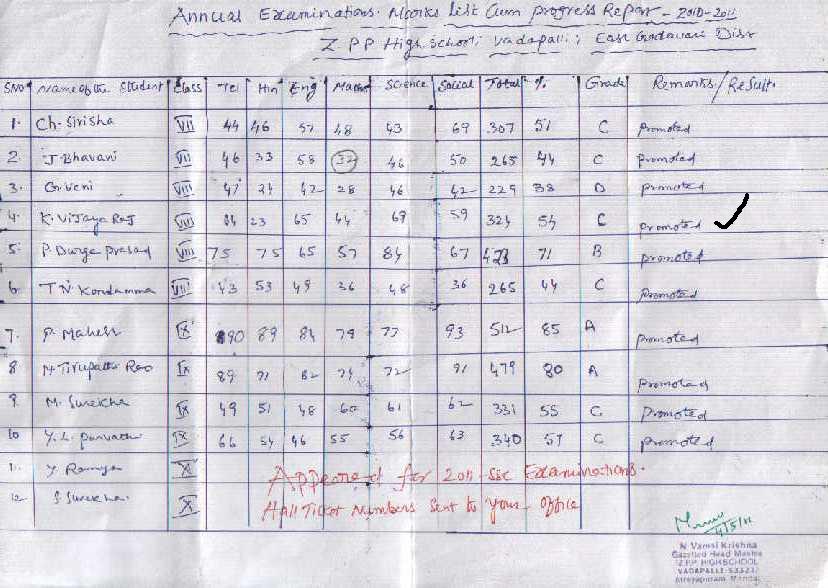 Annual Examinations. Marks List Cum Progress Report - 2010-2011
Z PP High school, Vadapalli, East Godavari Dist
SNO Name of the Student Class Tel Hin Eng Maths Science Social Total % Grade Remarks/Result.
1. Ch. Sirisha VII 44 46 57 48 43 69 307 51 C promoted
2 J. Bhavani VII 46 33 58 32 46 50 265 44 C promoted
3. G. Veni VIII 47 24 42 28 46 42 229 38 D promoted
4. K. Vijaya Raj VIII 84 23 65 44 69 59 324 54 C promoted ✓
5. P. Durga prasad VIII 75 75 65 57 84 67 423 71 B promoted
6. T N Kondamma VIII 43 53 49 36 48 36 265 44 C promoted
7. P. Mahesh IX 90 89 84 79 77 93 512 85 A Promoted
8 N. Tirupathi Rao IX 89 71 82 74 72 91 479 80 A promoted
9 M. Surekha IX 49 51 48 60 61 62 331 55 C promoted
10 Y. L. parvathi IX 66 54 46 55 56 63 340 57 C promoted
11. Y Ramya X Appeared for 2011-SSC Examinations.
12. S Surekha. X Hall Ticket Numbers Sent to your office
4/5/11
N Vamsi Krishna
Gazetted Head Master
Z.P.P HIGH SCHOOL
VADAPALLE-533237
Atreyapuram Mandal